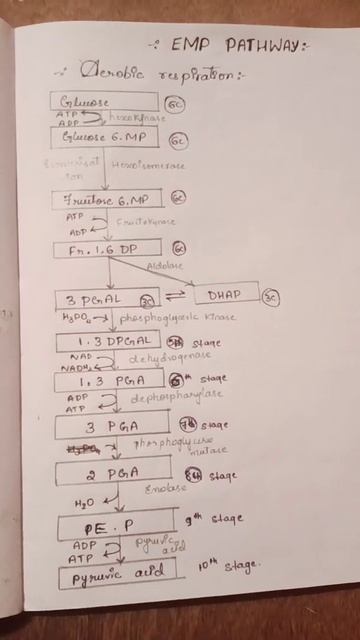 -: EMP PATHWAY:-
-: Aerobic respiration:-
Glucose 6C
ATP
ADP hexokinase
Glucose 6.MP 6C
Hexoisomerase
Fructose 6.MP 6C
ATP
ADP Fructokinase
Fr. 1.6 DP 6C
Aldolase
3 PGAL 3C ⇌ DHAP 3C
H₃PO₄ phosphoglyceric Kinase
1.3 DPGAL 5th stage
NAD
NADH₂ dehydrogenase
1.3 PGA 6th stage
ADP
ATP dephospharylase
3 PGA 7th stage
H₃PO₄ phosphoglycero
mutase
2 PGA 8th stage
H₂O Enolase
PE.P 9th stage
ADP
ATP pyruvic
acid
Pyruvic acid 10th stage.